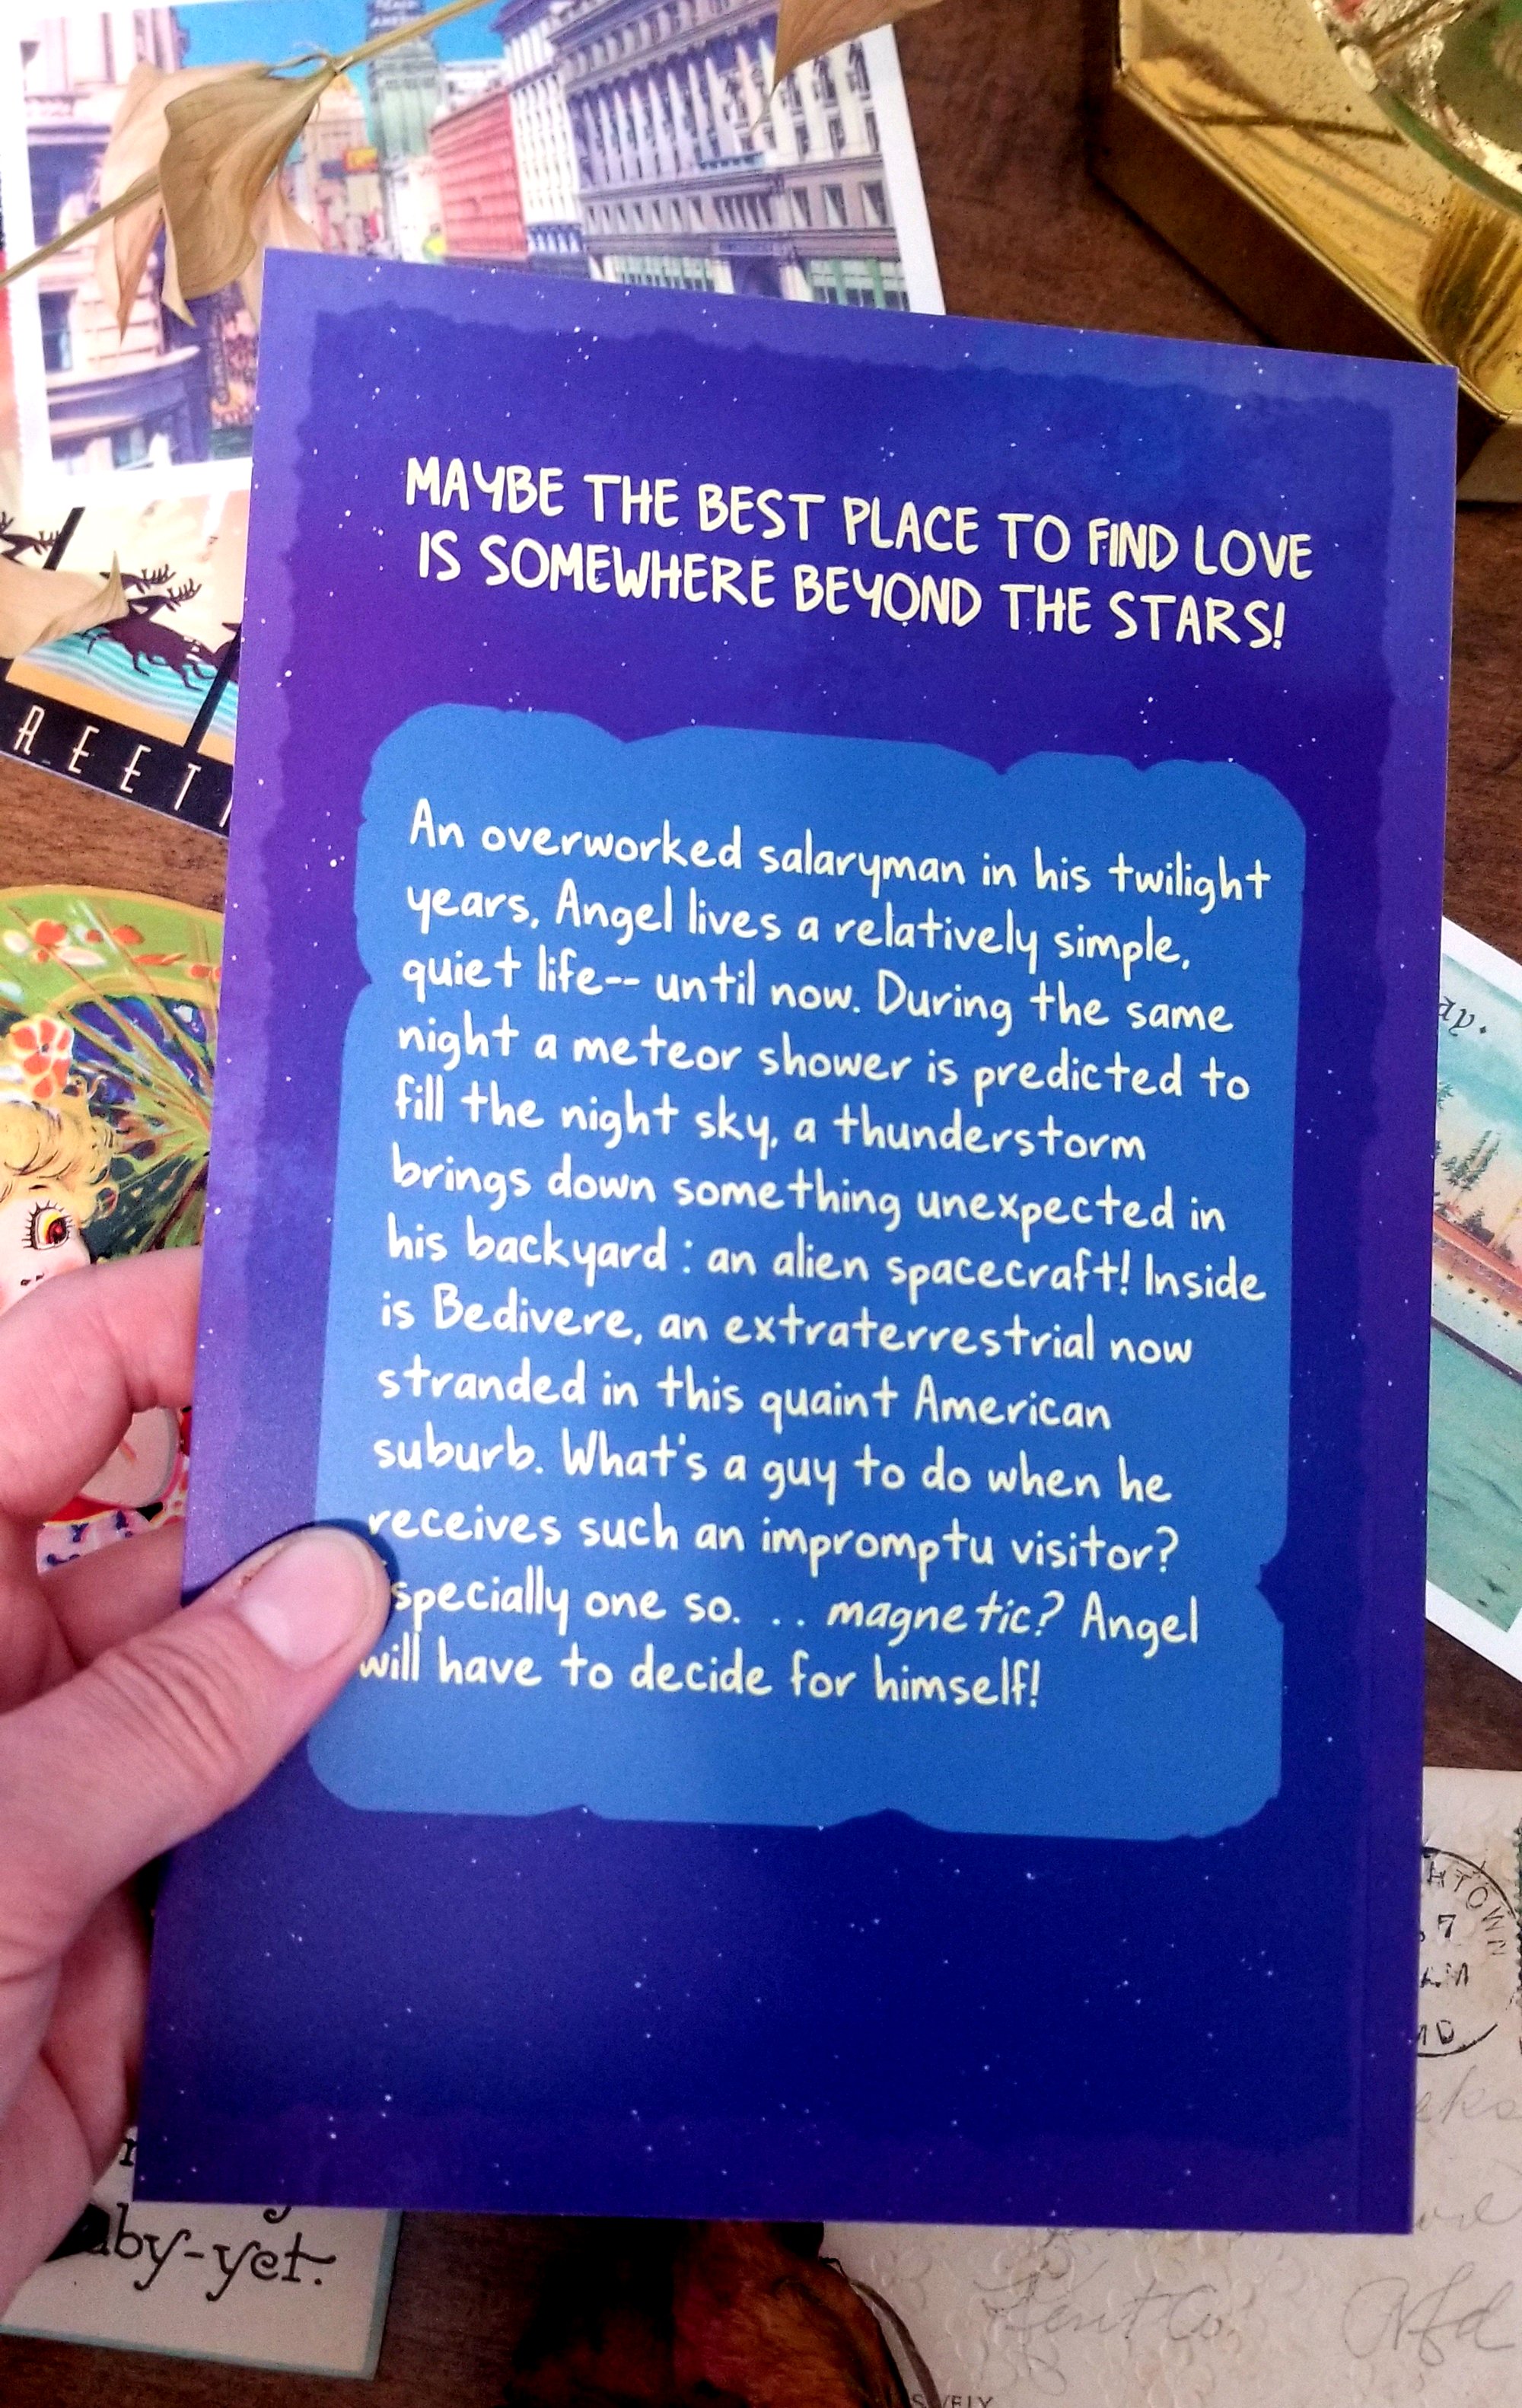 MAYBE THE BEST PLACE TO FIND LOVE
IS SOMEWHERE BEYOND THE STARS!
An overworked salaryman in his twilight
years, Angel lives a relatively simple,
quiet life-- until now. During the same
night a meteor shower is predicted to
fill the night sky, a thunderstorm
brings down something unexpected in
his backyard: an alien spacecraft! Inside
is Bedivere, an extraterrestrial now
stranded in this quaint American
suburb. What's a guy to do when he
receives such an impromptu visitor?
specially one so. .. magnetic? Angel
will have to decide for himself!
REET
ay.
HTOWN
7
MD
eks
aby-yet.